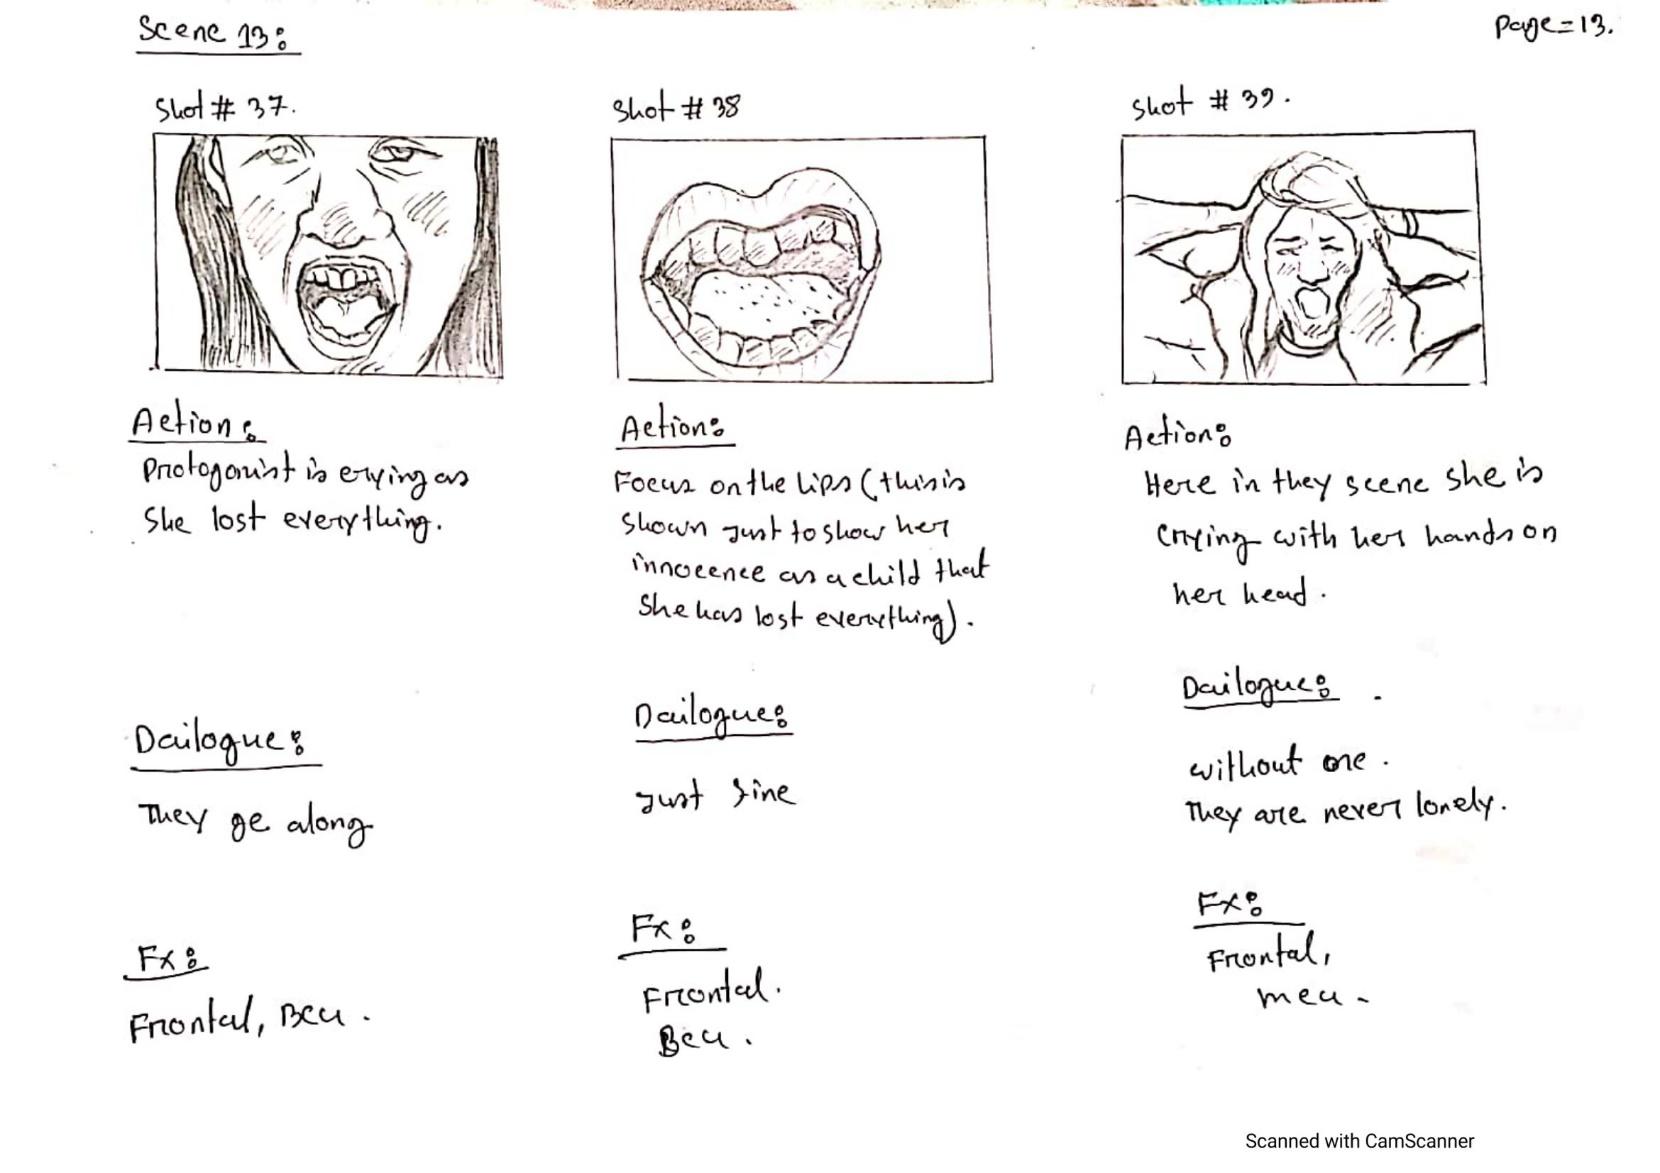 Scene 13:
Page=13.
Shot # 37.
Action:
Protogonist is crying as
She lost everything.
Dailogue:
They ge along
Fx:
Frontal, BCU.
Shot # 38
Action:
Focus on the Lips (this is
shown just to show her
innocence as a child that
She has lost everything).
Dailogue:
Just fine
Fx:
Frontal.
BCU.
Shot # 39.
Action:
Here in they scene she is
crying with her hands on
her head.
Dailogue:
without one.
They are never lonely.
Fx:
Frontal,
mcu.
Scanned with CamScanner